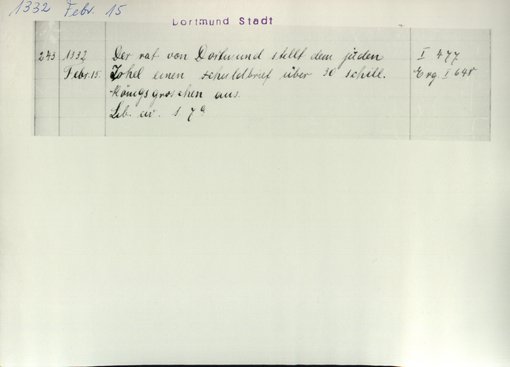 1332 Febr. 15
Dortmund Stadt
243 1332 Der rat von Dortmund stellt dem juden I 477
Febr. 15. einen schuldbrief über 30 schill. Erg. I 648
königsgroschen aus.
Lib. civ. s. 7a